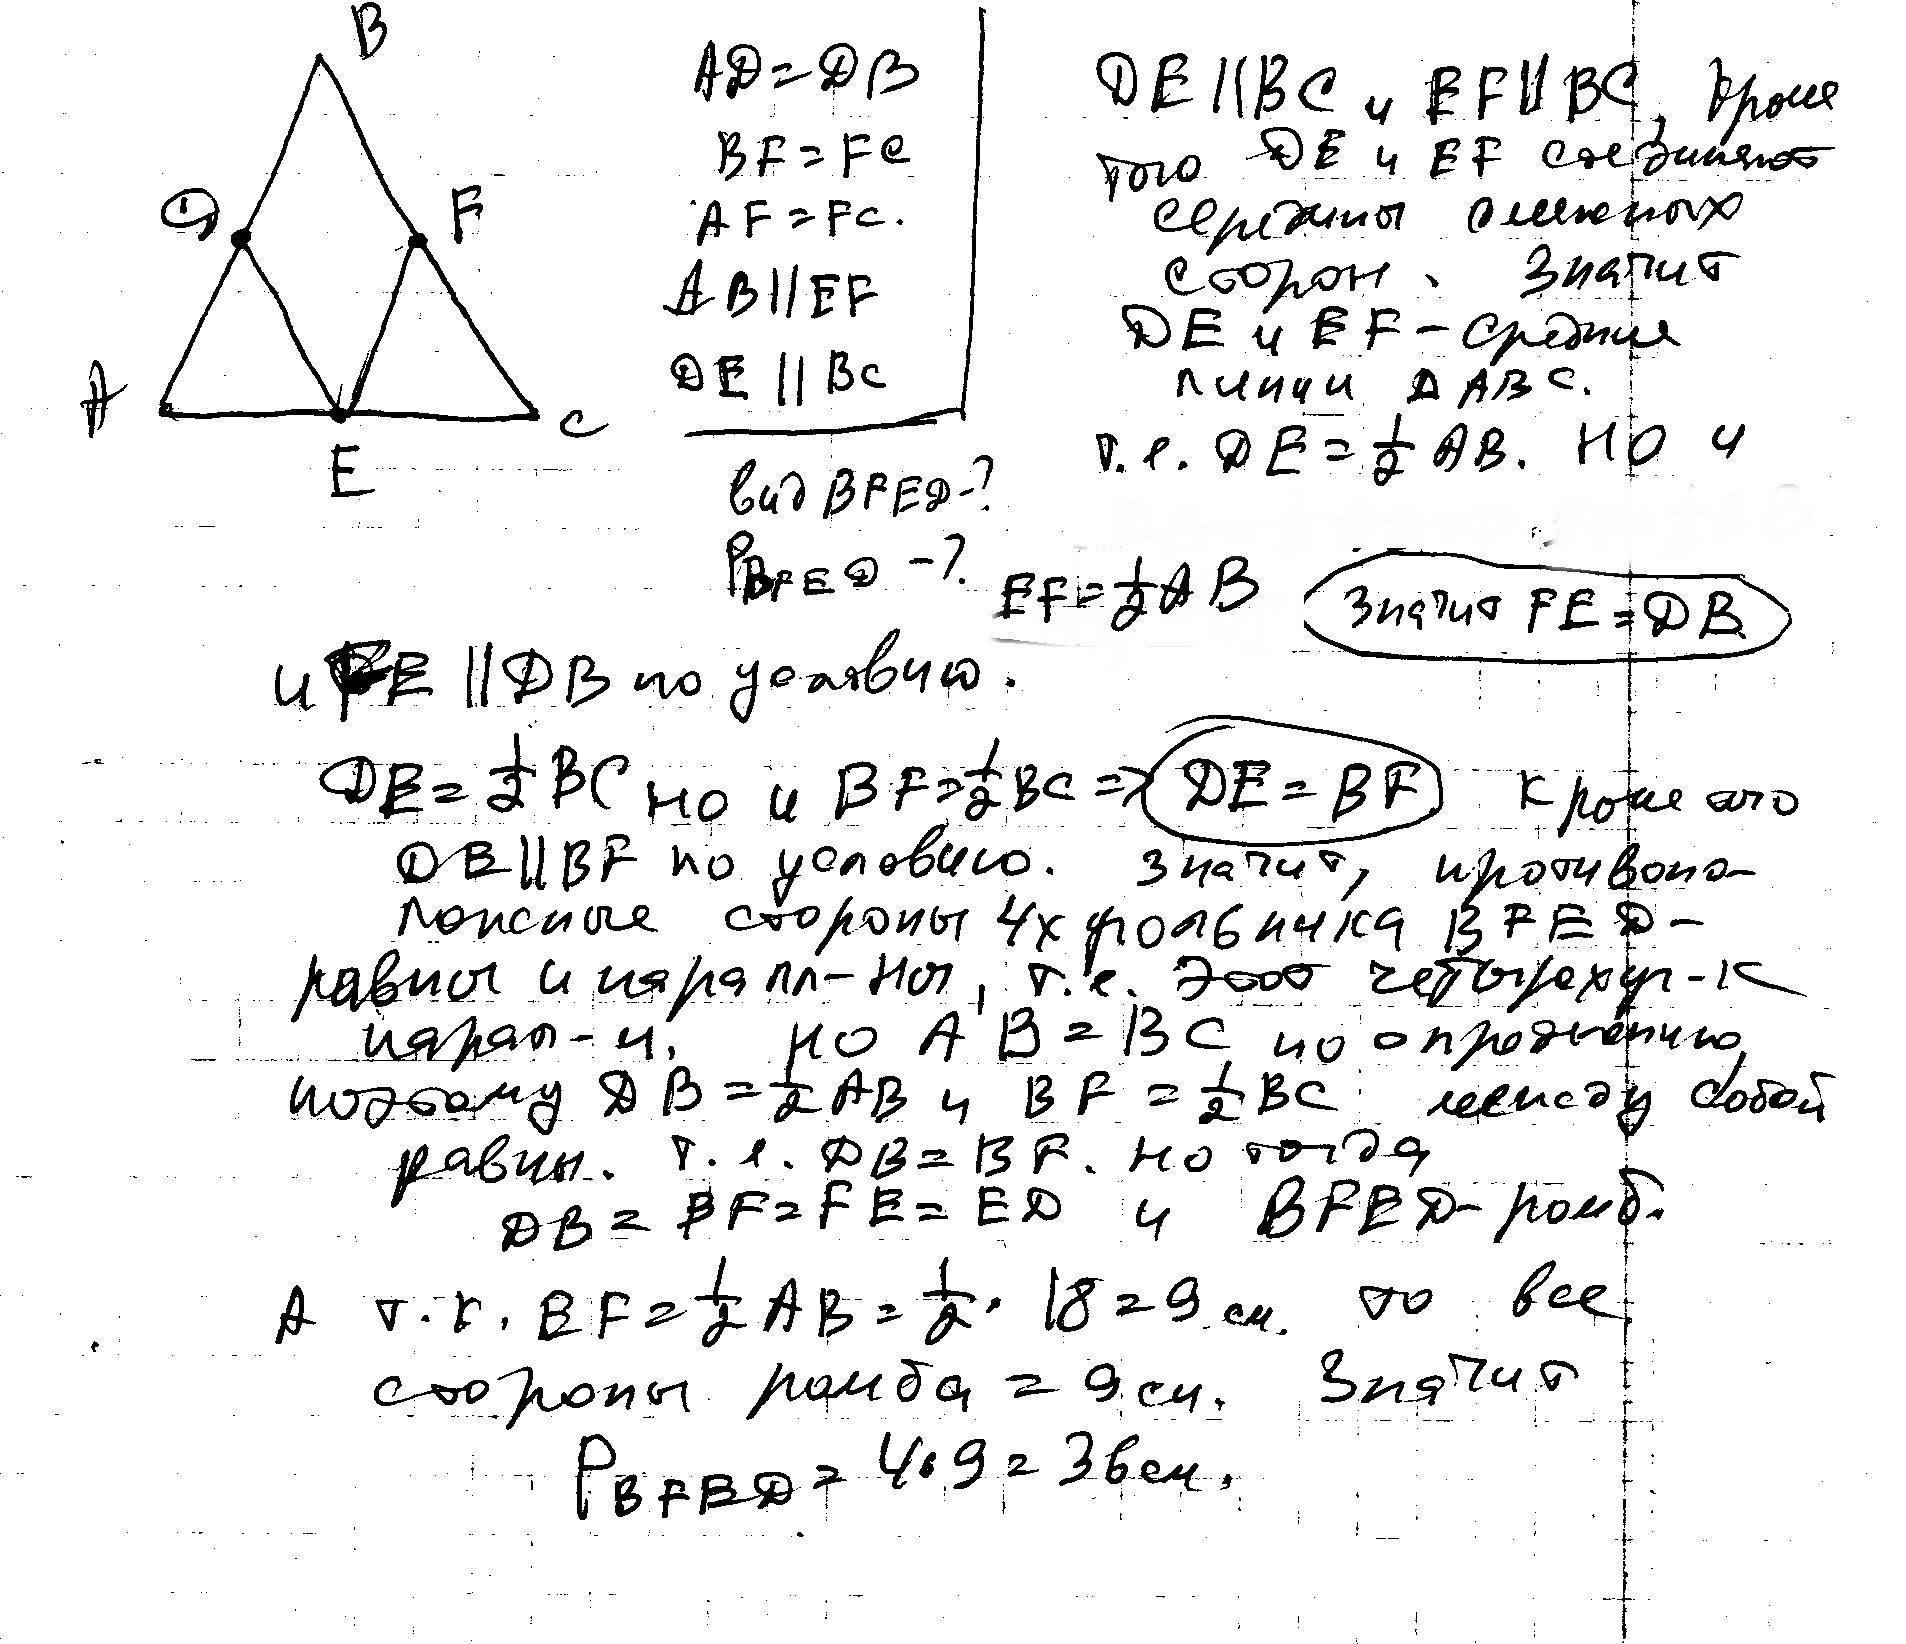 B
D
F
A
E
C
AD=DB
BF=FC
AF=FC.
AB||EF
DE||BC
вид BFED-?
P BFED-?
DE||BC и EF||BC, кроме
того DE и EF соединяют
середины смежных
сторон. Значит
DE и EF - средние
линии △ABC.
т.е. DE=½AB. НО и
EF=½AB Значит FE=DB
и FE||DB по условию.
DE=½BC НО и BF=½BC=>DE=BF Кроме того
DE||BF по условию. Значит, противопо-
ложные стороны 4х угольника BFED-
равны и паралл-ны, т.е. этот четырехуг-к
парал-м. НО AB=BC по определению,
поэтому DB=½AB и BF=½BC между собой
равны. Т.е. DB=BF. но тогда
DB=BF=FE=ED и BFED-ромб.
А т.к. BF=½AB=½·18=9 см. то все
стороны ромба=9 см. Значит
P BFED=4·9=36 см.